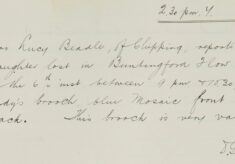 2.30 p.m. 4.
Lucy Beadle, of Chipping, reports
aughter lost in Buntingford
the 6th inst between 9 pm & 10.30
dy's brooch, blue Mosaic front
ack. This brooch is very va